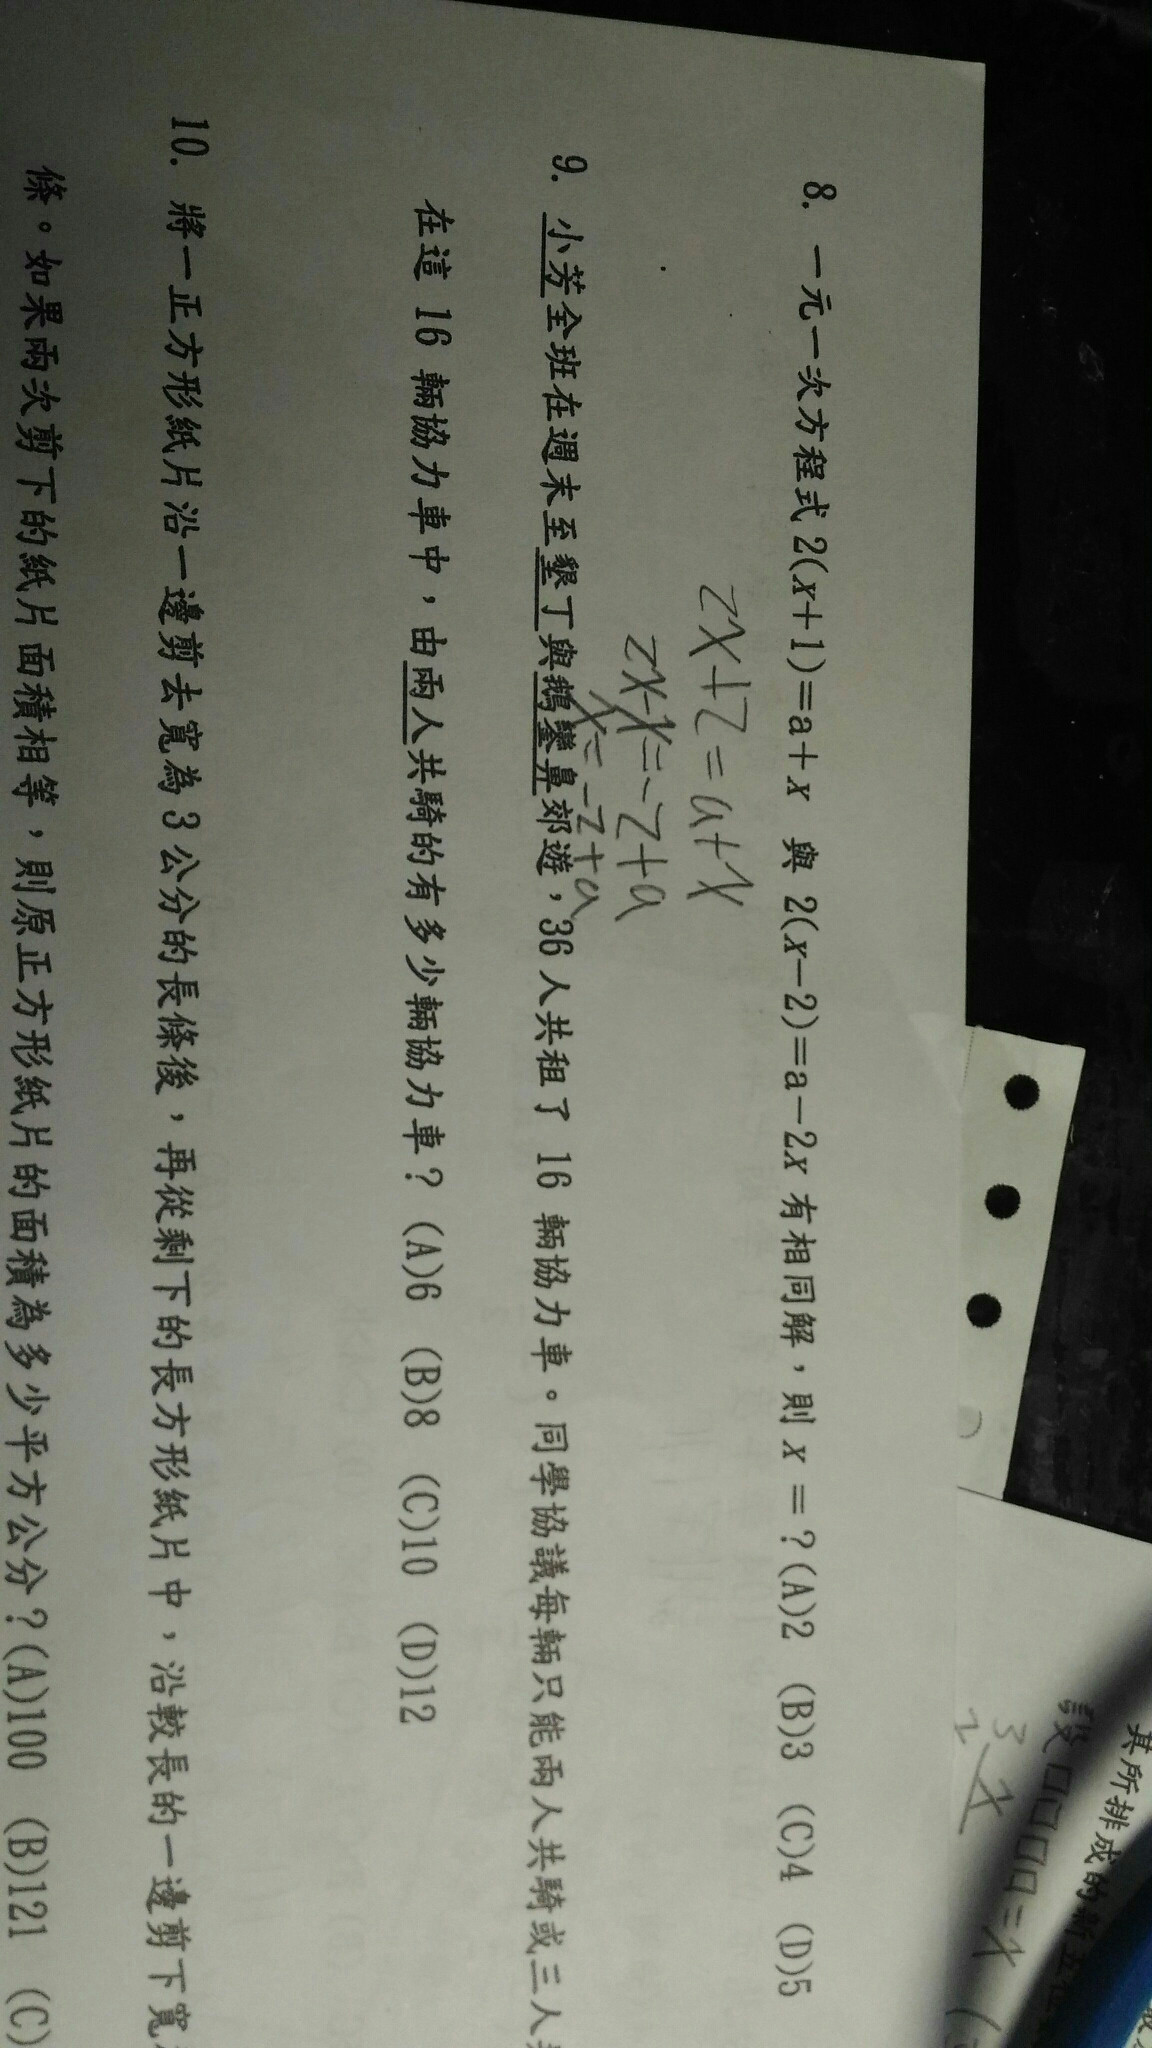 8. 一元一次方程式 2(x+1)=a+x 與 2(x-2)=a-2x 有相同解，則 x = ? (A)2 (B)3 (C)4 (D)5
2x+2=a+x
2x-x=-2+a
x=-2+a
9. 小芳全班在週末至墾丁與鵝鑾鼻郊遊，36 人共租了 16 輛協力車。同學協議每輛只能兩人共騎或三人
在這 16 輛協力車中，由兩人共騎的有多少輛協力車？(A)6 (B)8 (C)10 (D)12
10. 將一正方形紙片沿一邊剪去寬為 3 公分的長條後，再從剩下的長方形紙片中，沿較長的一邊剪下寬
條。如果兩次剪下的紙片面積相等，則原正方形紙片的面積為多少平方公分？(A)100 (B)121 (C)
其所排成的新
設口口口口=x
3
2
x